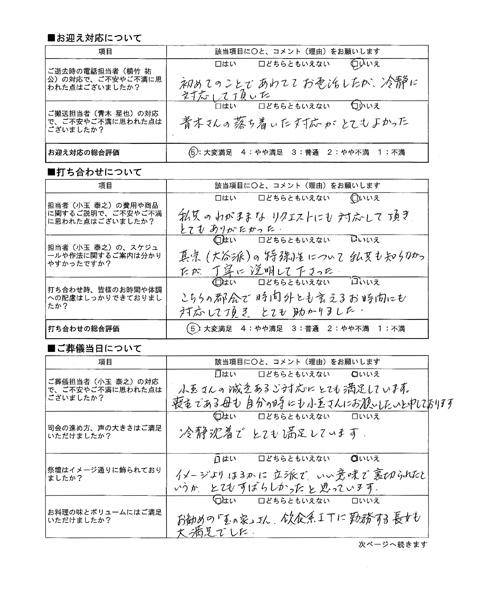 ■お迎え対応について
項目 該当項目に○と、コメント（理由）をお願いします
ご逝去時の電話担当者（横竹 祐
公）の対応で、ご不安やご不満に思
われた点はございましたか？
□はい □どちらともいえない □いいえ
初めてのことであわててお電話したが、冷静に
対応して頂いた
ご搬送担当者（青木 星也）の対応
で、ご不安やご不満に思われた点は
ございましたか？
□はい □どちらともいえない □いいえ
青木さんの落ち着いた対応がとてもよかった
お迎え対応の総合評価 ⑤：大変満足 4：やや満足 3：普通 2：やや不満 1：不満
■打ち合わせについて
項目 該当項目に○と、コメント（理由）をお願いします
担当者（小玉 泰之）の費用や商品
に関するご説明で、ご不安やご不満
に思われた点はございましたか？
□はい □どちらともいえない □いいえ
私共のわがままな リクエストにも対応して頂き
とてもありがたかった。
担当者（小玉 泰之）の、スケジュ
ールや作法に関するご案内は分かり
やすかったですか？
□はい □どちらともいえない □いいえ
真宗（大谷派）の特殊性について私共も知らなかっ
たが、丁寧に説明して下さった。
打ち合わせ時、皆様のお時間や体調
への配慮はしっかりできておりまし
たか？
□はい □どちらともいえない □いいえ
こちらの都合で時間外とも言えるお時間にも
対応して頂き、とても助かりました。
打ち合わせの総合評価 ⑤：大変満足 4：やや満足 3：普通 2：やや不満 1：不満
■ご葬儀当日について
項目 該当項目に○と、コメント（理由）をお願いします
ご葬儀担当者（小玉 泰之）の対応
で、ご不安やご不満に思われた点は
ございましたか？
□はい □どちらともいえない □いいえ
小玉さんの誠意あるご対応にとても満足しています。
喪主である母も自分の時にも小玉さんにお願いしたいと申しております
司会の進め方、声の大きさはご満足
いただけましたか？
□はい □どちらともいえない □いいえ
冷静沈着でとても満足しています。
祭壇はイメージ通りに飾られており
ましたか？
□はい □どちらともいえない □いいえ
イメージよりはるかに立派で、いい意味で裏切られたと
いうか、とてもすばらしかったと思っています。
お料理の味とボリュームにはご満足
いただけましたか？
□はい □どちらともいえない □いいえ
お勧めの「玉の家」さん、飲食系ITに勤務する長女も
大満足でした。
次ページへ続きます